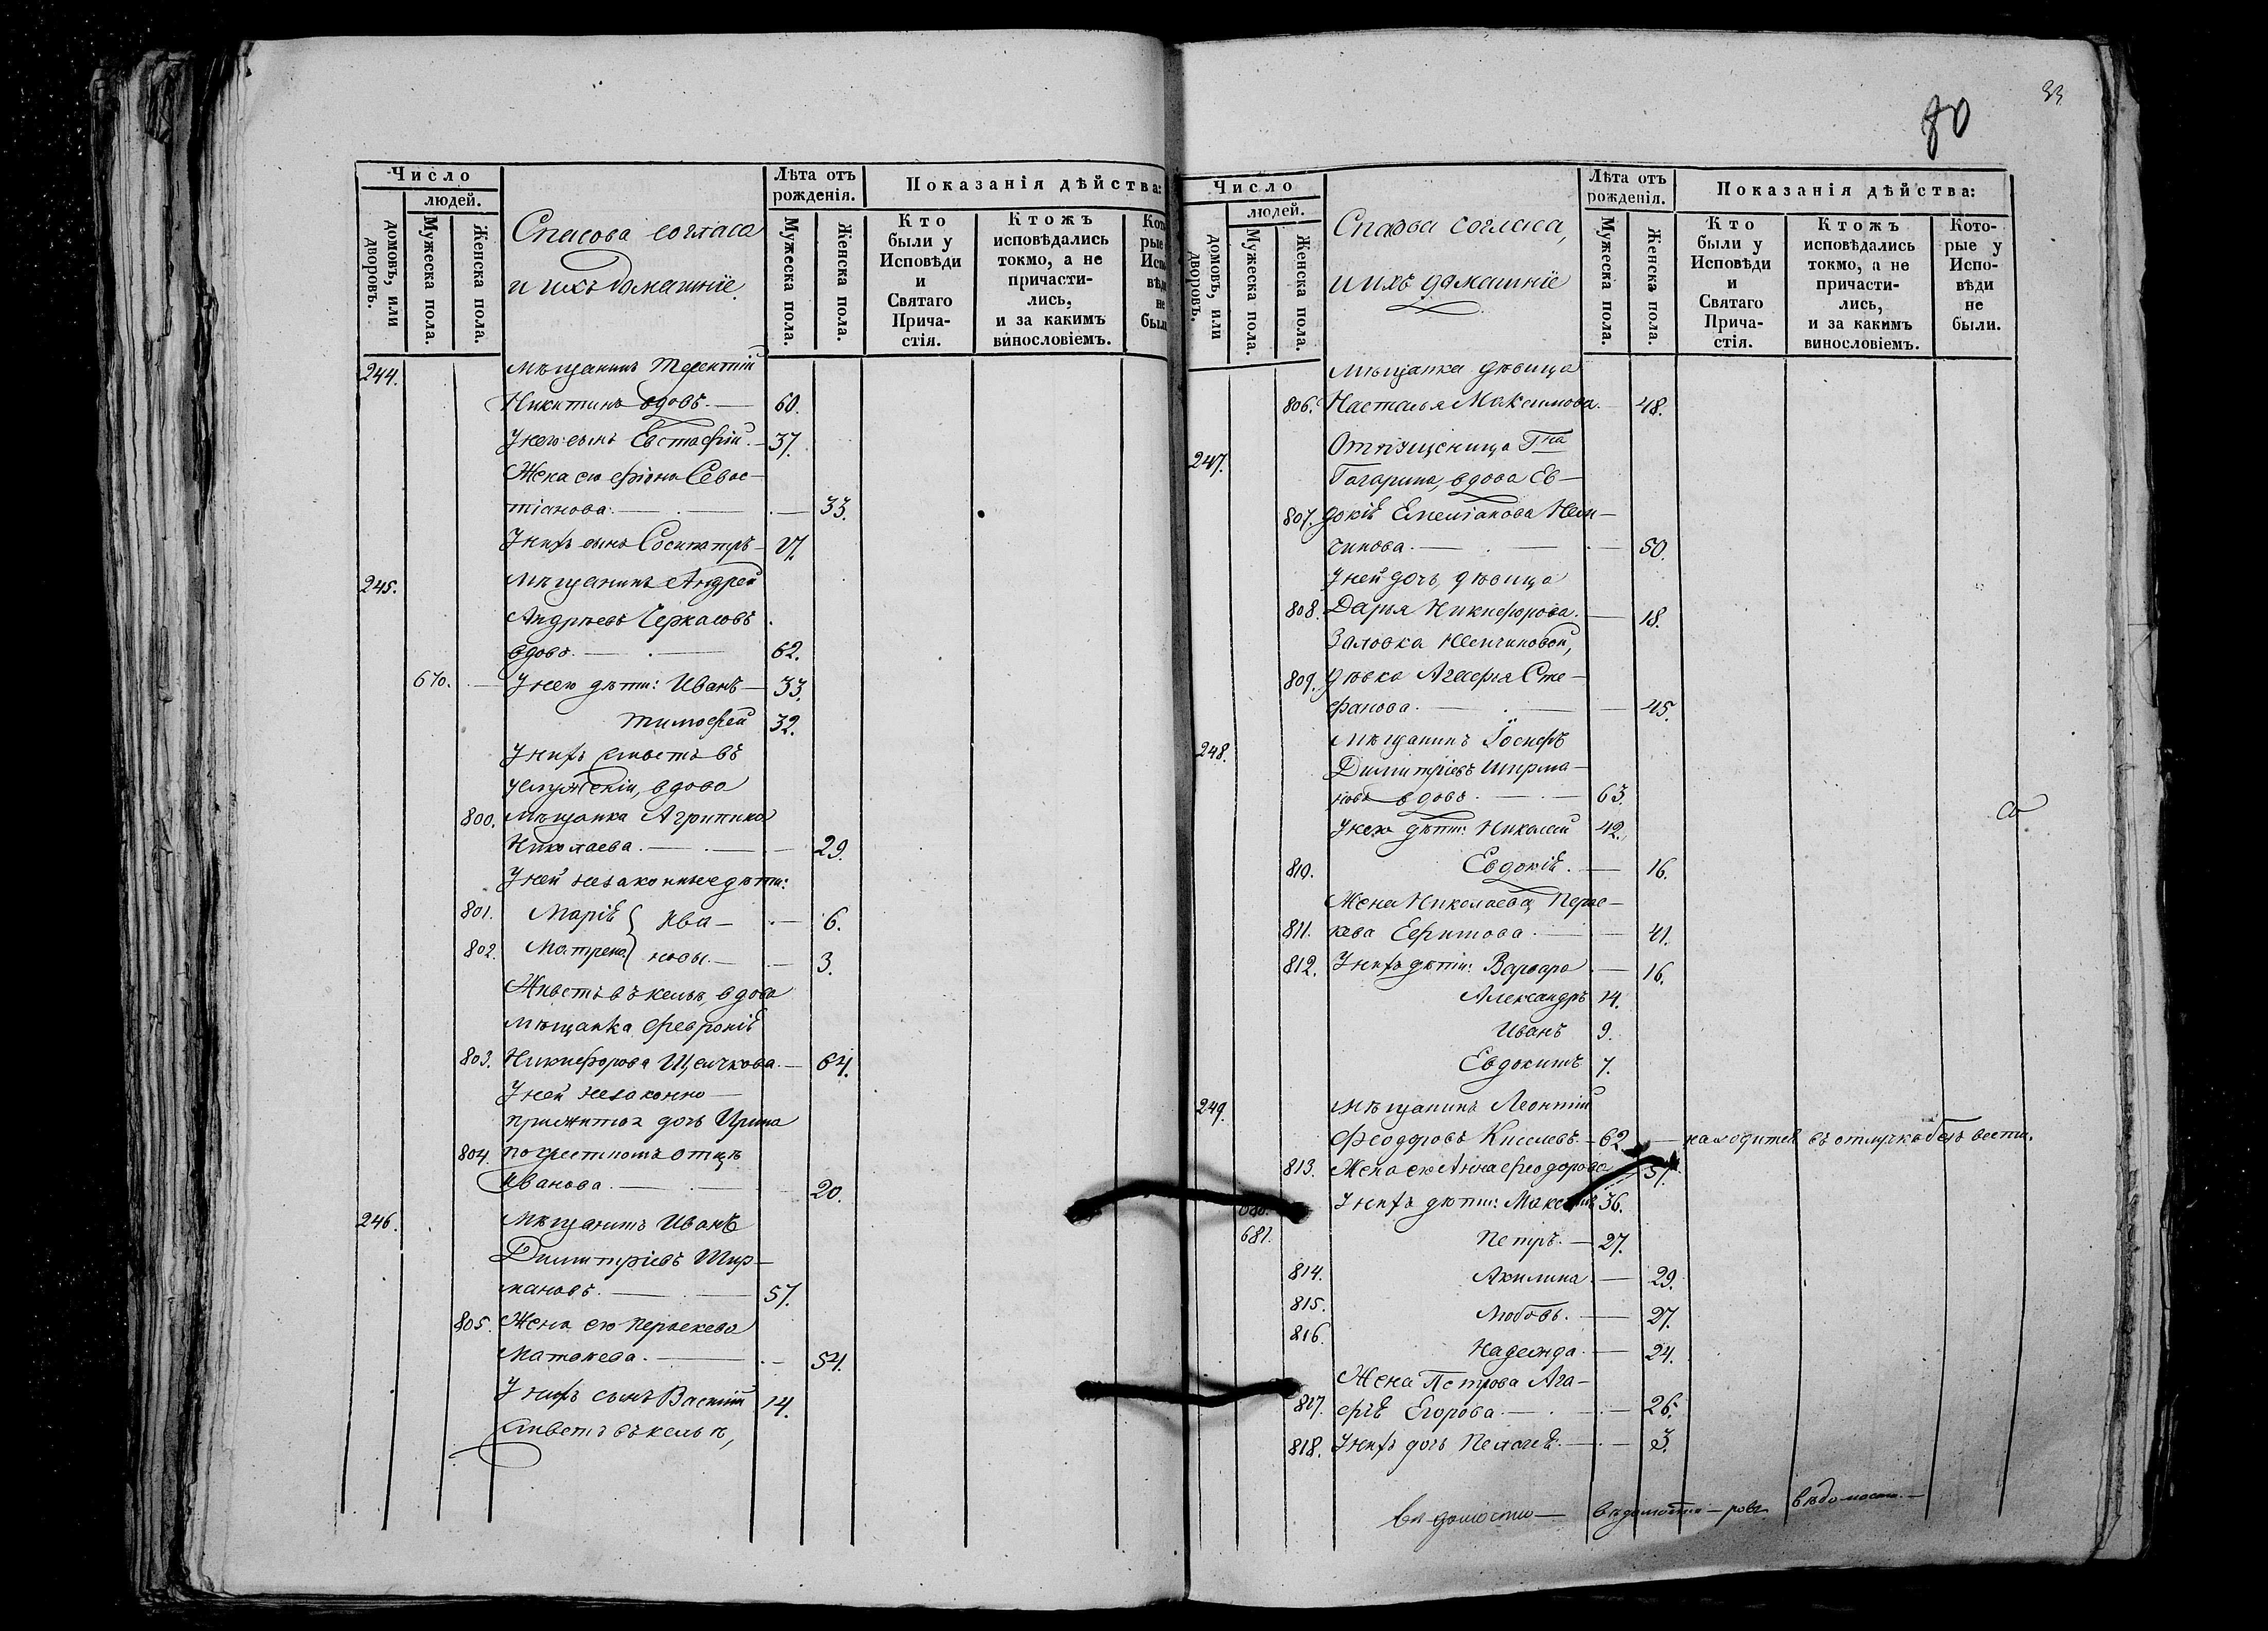 Число
людей.
домовъ, или дворовъ.
Мужеска пола.
Женска пола.
Спасова согласа
и ихъ домашніе.
Лѣта отъ рожденія.
Мужеска пола.
Женска пола.
Показанія дѣйства:
Кто были у Исповѣди и Святаго Прича-стія.
Ктожъ исповѣдались токмо, а не причасти-лись, и за какимъ винословіемъ.
244. Мѣщанинъ Терентій
Никитинъ вдовъ. — 60.
У него сынъ Евстафій. — 37.
Жена его Севас-
тіанова. — 33.
У нихъ сынъ Сосипатръ —
245. Мѣщанинъ Андрей
Андреевъ Черкасовъ
вдовъ. — 62.
670. У него дѣти: Иванъ — 33.
Тимофей 32.
У нихъ живетъ въ
услуженіи, вдова
800. Мѣщанка Агрипина
Николаева. — 29.
У ней незаконные дѣти:
801. Марія } Ива- — 6.
802. Матрена } новы. — 3.
Живетъ въ кельѣ, вдова
мѣщанка Февронія
803. Никифорова Щелчкова. — 64.
У ней незаконно
прижитая дочь Ирина
804. по крестномъ отцѣ
Иванова. — 20.
246. Мѣщанинъ Иванъ
Димитріевъ Шир-
мановъ. — 57.
805. Жена его Параскева
Матвѣева. — 54.
У нихъ сынъ Василій 14.
Живетъ въ кельѣ,
80
33
Число
людей.
домовъ, или дворовъ.
Мужеска пола.
Женска пола.
Спасова согласа,
и ихъ домашніе
Лѣта отъ рожденія.
Мужеска пола.
Женска пола.
Показанія дѣйства:
Кто были у Исповѣди и Святаго Прича-стія.
Ктожъ исповѣдались токмо, а не причасти-лись, и за какимъ винословіемъ.
Кото-рые у Испо-вѣди не были.
Мѣщанка дѣвица
806. Настасья Максимова. 48.
247. Отпущеница Гна
Гагарина, вдова Ев-
807. докія Емеліанова Нем-
чинова. — 50.
У ней дочь, дѣвица
808. Дарья Никифорова. — 18.
Заловка Немчиновой,
809. дѣвка Агафья Сте-
фанова. — 45.
248. Мѣщанинъ Іосифъ
Димитріевъ Ширма-
новъ вдовъ. — 63.
У него дѣти: Николай 42.
810. Евдокія. — 16.
Жена Николаева, Парас-
811. кева Ефимова. — 41.
812. У нихъ дѣти: Варвара — 16.
Александръ 14.
Иванъ 9.
Евдокимъ 7.
249. Мѣщанинъ Леонтій
Феодоровъ Киселевъ. — 62. — находится въ отлучкѣ безъ вести.
813. Жена его Анна Феодорова 57.
У нихъ дѣти: Максимъ 36.
681. Петръ. — 27.
814. Акилина. — 29.
815. Любовь. — 27.
816. Надежда. — 24.
Жена Петрова Ага-
817. фія Егорова. — 26.
818. У нихъ дочь Пелагея. — 3.